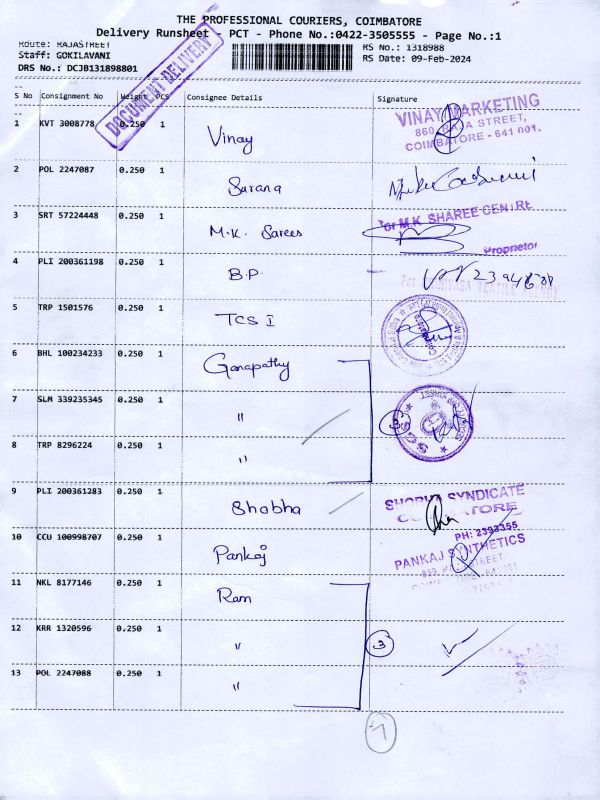 THE PROFESSIONAL COURIERS, COIMBATORE
Delivery Runsheet - PCT - Phone No.:0422-3505555 - Page No.:1
Route: RAJASTREET
RS No.: 1318988
Staff: GOKILAVANI
RS Date: 09-Feb-2024
DRS No.: DCJB131898801
DOCUMENT DELIVERY
S No Consignment No Weight PCS Consignee Details Signature
1 KVT 3008778 0.250 1 Vinay
VINAY MARKETING
860, RAJA STREET,
COIMBATORE - 641 001.
2 POL 2247087 0.250 1 Sarana
3 SRT 57224448 0.250 1 M.K. Sarees
For M.K. SHAREE CENTRE
Proprietor
4 PLI 200361198 0.250 1 B.P.
5 TRP 1501576 0.250 1 TCS I
6 BHL 100234233 0.250 1 Ganapathy
7 SLM 339235345 0.250 1 "
3
8 TRP 8296224 0.250 1 "
9 PLI 200361283 0.250 1 Shobha
SHOBHA SYNDICATE
COIMBATORE
PH: 2393355
10 CCU 100998707 0.250 1 Pankaj
PANKAJ SYNTHETICS
11 NKL 8177146 0.250 1 Ram
12 KRR 1320596 0.250 1 "
3
13 POL 2247088 0.250 1 "